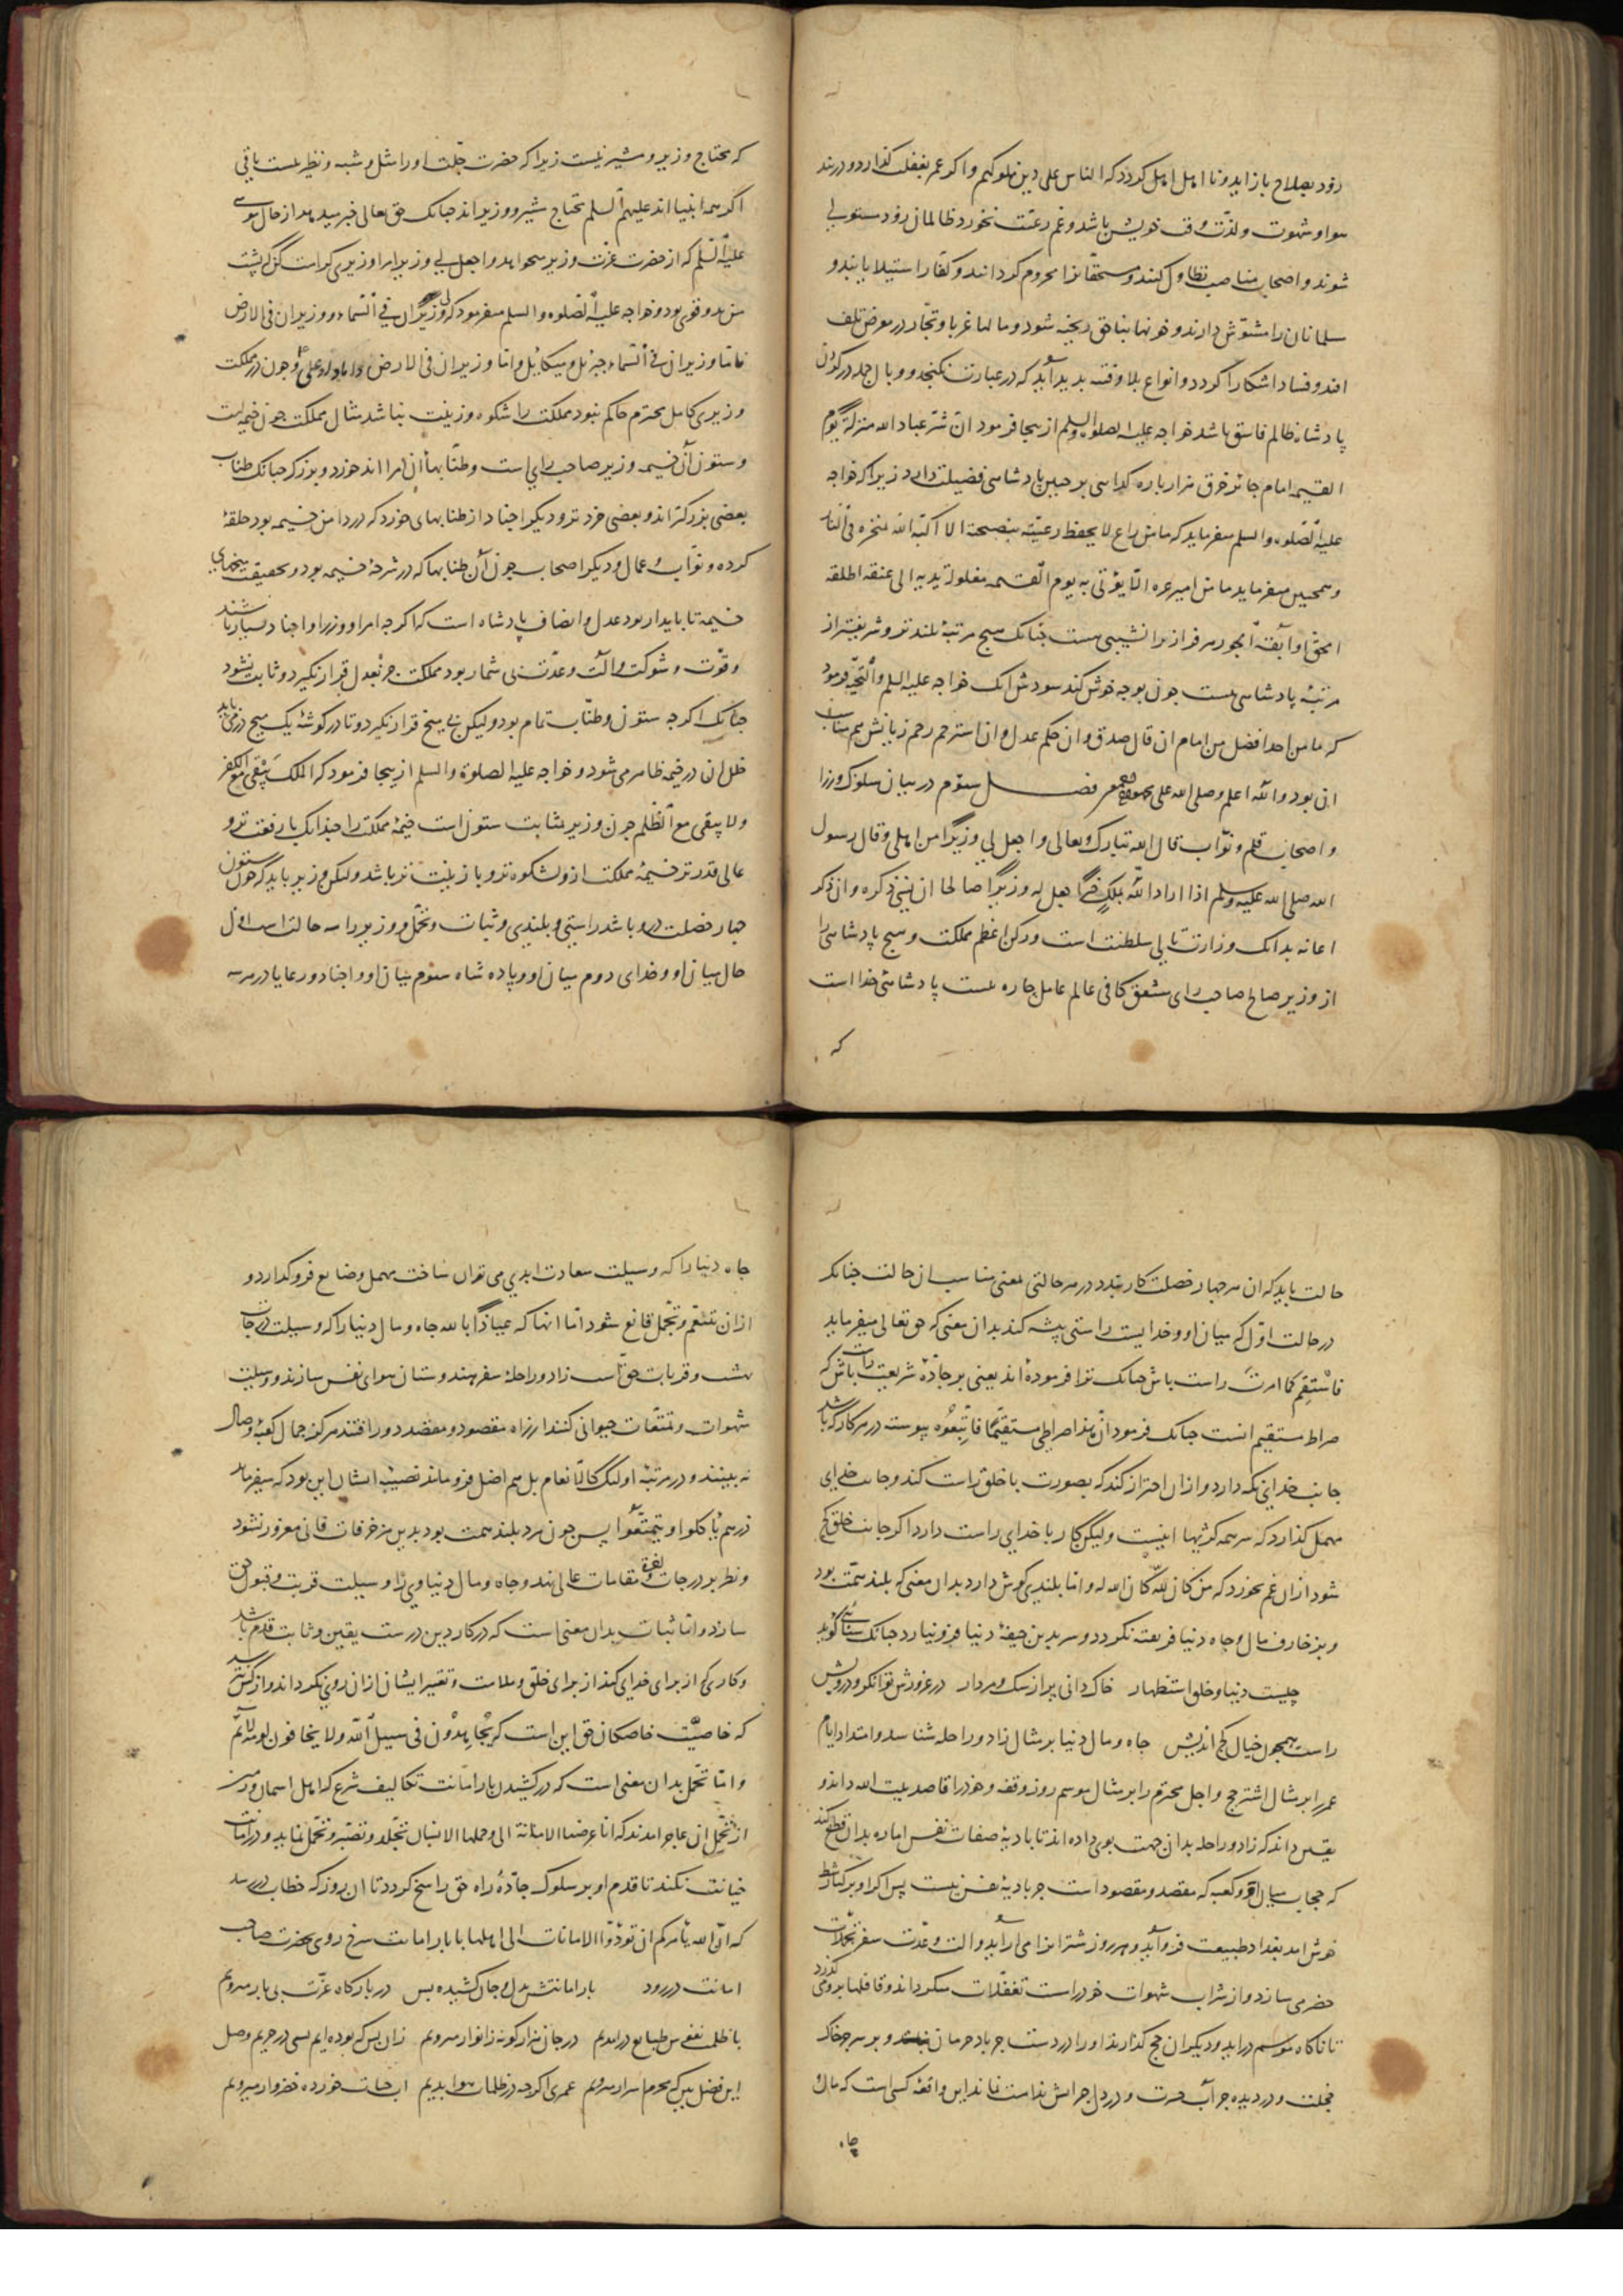 رود بصلاح باز آید و نا اهل اهل گردد که الناس علی دین ملوکهم و اگر عمر بغفلت گذارد و در بند
هوا و شهوت و لذت وقت خویش باشد و غم رعیت نخورد ظالمان زود مستولی
شوند و اصحاب مناصب تطاول کنند و مستحقانرا محروم گردانند و کفار استیلا یابند و
مسلمانان را مشوّش دارند و خونها بناحق ریخته شود و مالها غربا و تجار در معرض تلف
افتد و فساد اشکارا گردد و انواع بلا و فتنه بدید آید که در عبارت نگنجد و وبال جمله در گردن
پادشاه ظالم فاسق باشد خواجه علیه الصلوه والسلم از ینجا فرمود ان شرّ عباد الله منزلة یوم
القیمه امام جائر خرق هزار باره گدایی بر چنین پادشاهی فضیلت دارد زیرا که خواجه
علیه الصلوه والسلم میفرماید که ما من راع لا یحفظ رعیته بنصیحة الا اکبّه الله منخره فی النار
و همچنین میفرماید ما من امیر عشرة الا یؤتی به یوم القیمه مغلولة یدیه الی عنقه اطلقه
الحق او آبقه الجور هر فراز را نشیبی هست چنانک هیچ مرتبهٔ بلندتر و شریفتر از
مرتبهٔ پادشاهی نیست چون بوجه خوش کند سودش انک خواجه علیه السلم والتحیه فرمود
که ما من احد افضل من امام ان قال صدق و ان حکم عدل و ان استرحم رحم زیانش هم بمثابت
این بود والله اعلم وصلی الله علی محمد فصل سوم در بیان سلوک وزرا
و اصحاب قلم و نوّاب قال الله تبارک وتعالی واجعل لی وزیرا من اهلی وقال رسول
الله صلی الله علیه وسلم اذا اراد الله بملک خیرا جعل له وزیرا صالحا ان نسی ذکره وان ذکر
اعانه بدانک وزارت تالی سلطنت است و رکن اعظم مملکت و هیچ پادشاهی را
از وزیر صالح صاحب رای مشفق کافی عالم عامل چاره نیست پادشاهی خدا است
که
که محتاج وزیر و مشیر نیست زیرا که حضرت جلت او را مثل و شبه و نظیر نیست باقی
اگر همه انبیا اند علیهم السلم محتاج مشیر و وزیر اند چنانک حق تعالی خبر میدهد از حال موسی
علیه السلم که از حضرت عزت وزیر میخواهد واجعل لی وزیرا هرا وزیری کراست کز پشت
من بدو قوی بود و خواجه علیه الصلوه والسلم میفرمود که لی وزیران فی السماء و وزیران فی الارض
فاما وزیران فی السماء جبرئل و میکائیل واما وزیران فی الارض و چون در مملکت
وزیری کامل محترم حاکم نبود مملکت را شکوه و زینت نباشد مثال مملکت چون خیمه است
و ستون آن خیمه وزیر صاحب رای است و طنابهاء آن امرا اند خورد و بزرک چنانک طناب
بعضی بزرکتر اند و بعضی خرد تر و دیکر اجناد از طنابهای خورد که در دامن خیمه بود حلقهٔ
کرده و نوّاب و عمال و دیکر اصحاب چون آن طنابها که در شرحهٔ خیمه بود و بحقیقت میخهای
خیمه تا بایدار بود عدل و انصاف پادشاه است که اکرچه امرا و وزرا و اجناد بسیار باشند
و قوّت و شوکت و آلت و عدّت بی شمار بود مملکت جز بعدل قرار نکیرد و ثابت نشود
چنانک اکرچه ستون و طناب تمام بود ولیکن بی میخ قرار نکیرد و تا در کوشهٔ یک میخ در می باید
خلل ان در خیمه ظاهر می شود و خواجه علیه الصلوة والسلم از ینجا فرمود که الملک یبقی مع الکفر
ولا یبقی مع الظلم چون وزیر بمثابت ستون است خیمهٔ مملکت را چندانک با رفعت تر و
عالی قدر تر خیمهٔ مملکت ازو بشکوه تر و با زینت تر باشد ولیکن وزیر باید که چون ستون
چهار خصلت درو باشد راستی و بلندی و ثبات و تحمّل و وزیر را سه حالت است اول
حال میان او و خدای دوم میان او و پادشاه سوم میان او و اجناد و رعایا در هر سه
حالت باید که ان هر چهار خصلت کار بندد در هر حالتی بمعنی مناسب ان حالت چنانک
در حالت اوّل که میان او و خدا یست راستی پیشه کند بدان معنی که حق تعالی میفرماید
فاستقم کما امرت راست باش چنانک ترا فرموده اند یعنی بر جادّهٔ شریعت راست باش که
صراط مستقیم انست چنانک فرمود انّ هذا صراطی مستقیما فاتبعوه پیوسته در هر کار که باشد
جانب خدای نکه دارد و از ان احتراز کند که بصورت با خلق راست کند و جانب خدای
مهمل کذارد که سر همه کژیها اینست ولیکن کار با خدای راست دارد اکر جانب خلق کج
شود ازان غم نخورد که من کان لله کان الله له و اما بلندی کوش دارد بدان معنی که بلند همّت بود
و بزخارف مال و جاه دنیا فریفته نکردد و سر بدین جیفهٔ دنیا فرو نیارد چنانک سنائی کوید
چیست دنیا و خلق استظهار خاک دانی پر از سک و مردار در غرورش توانکر و درویش
راست همچون خیال کج اندیش جاه و مال دنیا بر مثال زاد و راحله شناسد و امتداد ایام
عمر را بر مثال اشتر حج و اجل محترم را بر مثال موسم روز وقفه و خود را قاصد بیت الله داند و
یقین داند که زاد و راحله بدان جهت بوی داده اند تا بادیهٔ صفات نفس اماره بدان قطع کند
که حجاب میان او و کعبه که مقصد و مقصود است جز بادیهٔ نفس نیست پس اکر او بر کنار شط
خوش امد بغداد طبیعت فرو آید و هر روز شترانرا می آراید و الت و عدّت سفر تجملات
حضر می سازد و از شراب شهوات خود راست تغفلات سکر داند و قافلها بروی گذرد
تا ناکاه موسم در اید و دیکران حج کذارند او را در دست جز باد حرمان نبود و بر سر جز خاک
خجلت و در دیده جز آب حسرت و در دل جز اتش ندامت نماند این واقعهٔ کسی است که مال و
جاه
جاه دنیا را که وسیلت سعادت ابدی می توان ساخت مهمل و ضایع فرو کذارد و
از ان بتنعّم و تجمّل قانع شود اما انها که عیاذا بالله جاه و مال دنیا را که وسیلت درجات
بهشت و قربات حق است زاد و راحلهٔ سفر هندوستان هوای نفس سازند و وسیلت
شهوات و تمتعات حیوانی کنند از راه مقصود و مقصد دور افتند هرکز جمال کعبهٔ وصال
نه بینند و در مرتبهٔ اولئک کالانعام بل هم اضل فرو مانند نصیبهٔ ایشان این بود که میفرماید
ذرهم یأکلوا ویتمتعوا پس چون مرد بلند همت بود بدین مزخرفات فانی مغرور نشود
و نظر بر درجات و مقامات عالی نهد و جاه و مال دنیاوی را وسیلت قربت و قبول حق
سازد و اما ثبات بدان معنی است که در کار دین درست یقین و ثابت قدم باشد
و کاری که از برای خدای کند از برای خلق و ملامت و تغییر ایشان ازان روی نکرداند و از کس نترسد
که خاصیّت خاصکان حق این است که یجاهدون فی سبیل الله ولا یخافون لومة لائم
و اما تحمّل بدان معنی است که در کشیدن بار امانت تکالیف شرع که اهل اسمان و زمین
از تحمّل ان عاجز امدند که انا عرضنا الامانة الی وحملها الانسان تجلّد و تصبّر و تحمّل نماید و در امانت
خیانت نکند تا قدم او بر سلوک جادّهٔ راه حق راسخ کردد تا ان روز که خطاب در رسد
که انّ الله یأمرکم ان تؤدّوا الامانات الی اهلها با بار امانت سرخ روی بحضرت صاحب
امانت در رود بار امانتش بدل و جان کشیده پس در بارکاه عزّت بی بار میرویم
با ظلمت نفس طبایع درامدیم در جان هزار کونه ز انوار میرویم زان پس که بوده ایم بسی در حریم وصل
این فضل بین که محرم اسرار میرویم عمری اکرچه در ظلمات هوا بدیم اب حیات خورده خضروار میرویم